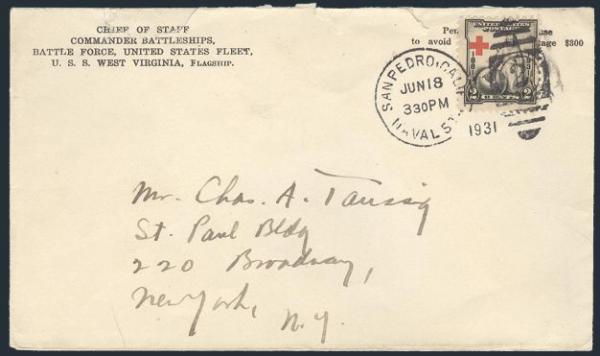 CHIEF OF STAFF
COMMANDER BATTLESHIPS,
BATTLE FORCE, UNITED STATES FLEET,
U. S. S. WEST VIRGINIA, FLAGSHIP.
to avoid
$300
UNITED STATES
POSTAGE
2 CENTS 2
SAN PEDRO, CALIF.
JUN 18
330 PM
NAVAL
1931
Mr. Chas. A. Taussig
St. Paul Bldg
220 Broadway,
New York,
N.Y.